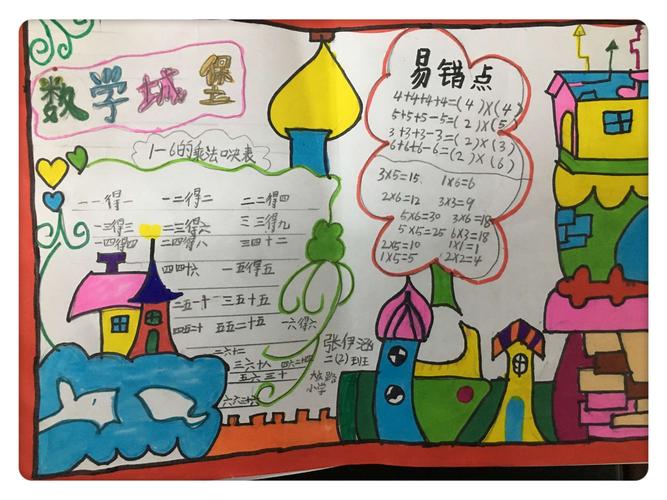 数学城堡
1-6的乘法口决表
一一得一 一二得二 二二得四
一三得三 二三得六 三三得九
一四得四 二四得八 三四十二
四四十六 一五得五
二五一十 三五十五
四五二十 五五二十五 一六得六
二六十二
三六十八 四六二十四
五六三十
六六三十六
易错点
4+4+4+4=(4)×(4)
5+5+5-5=(2)×(5)
3+3+3-3=(2)×(3)
6+6+6-6=(2)×(6)
3×5=15、 1×6=6
2×6=12 3×3=9
5×6=30 3×6=18
5×5=25 6×3=18
2×5=10 1×1=1
1×5=5 2×2=4
张伊涵
二(2)班
路
小学